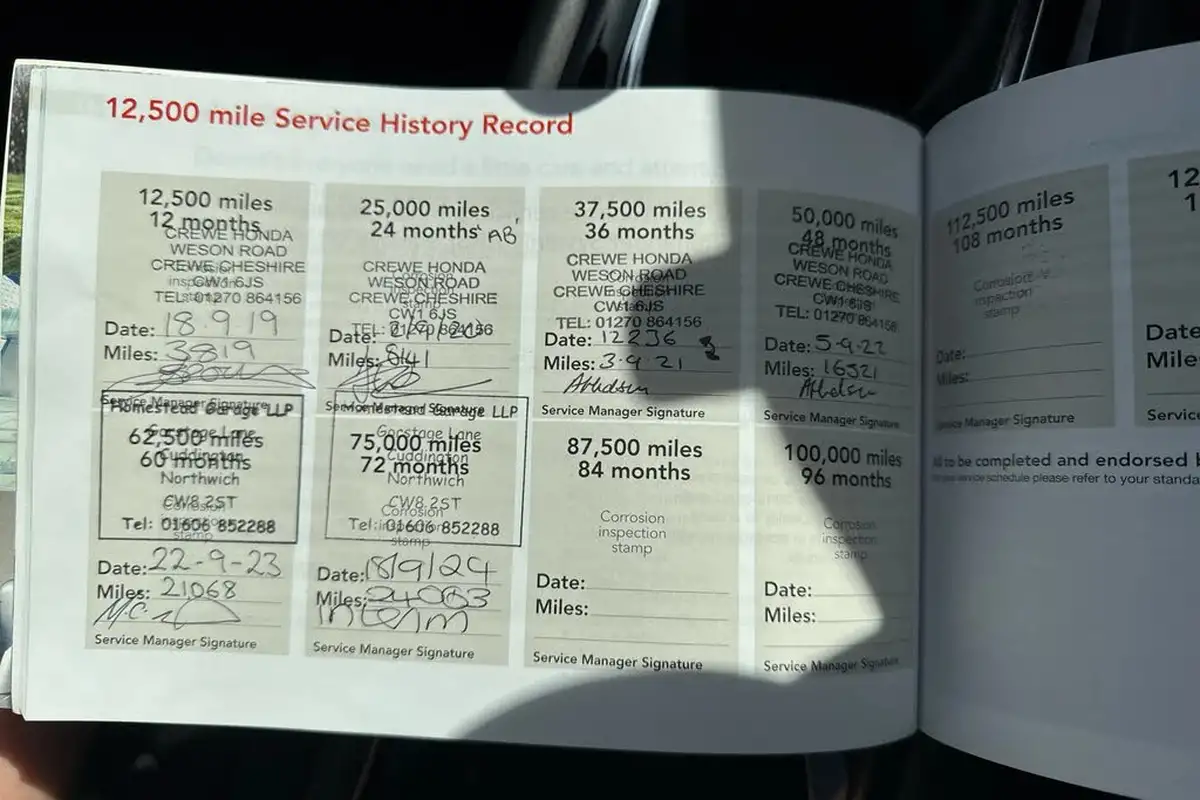 12,500 mile Service History Record
12,500 miles
12 months
CREWE HONDA
WESON ROAD
CREWE CHESHIRE
CW1 6JS
TEL: 01270 864156
Date: 18.9.19
Miles: 3819
Service Manager Signature
25,000 miles
24 months AB
CREWE HONDA
WESON ROAD
CREWE CHESHIRE
CW1 6JS
TEL: 01270 864156
Date:
Miles: 8141
Service Manager Signature
37,500 miles
36 months
CREWE HONDA
WESON ROAD
CREWE CHESHIRE
CW1 6JS
TEL: 01270 864156
Date: 12236
Miles: 3.9.21
Service Manager Signature
50,000 miles
48 months
CREWE HONDA
WESON ROAD
CREWE CHESHIRE
CW1 6JS
TEL: 01270 864156
Date: 5-9-22
Miles: 16321
Service Manager Signature
Homestead Garage LLP
62,500 miles
60 months
Gorstage Lane
Cuddington
Northwich
CW8 2ST
Tel: 01606 852288
stamp
Date: 22-9-23
Miles: 21068
Service Manager Signature
Homestead Garage LLP
75,000 miles
72 months
Gorstage Lane
Cuddington
Northwich
CW8 2ST
Corrosion
inspection
stamp
Tel: 01606 852288
Date: 18/9/24
Miles: 24063
Interim
Service Manager Signature
87,500 miles
84 months
Corrosion
inspection
stamp
Date:
Miles:
Service Manager Signature
100,000 miles
96 months
Corrosion
inspection
stamp
Date:
Miles:
Service Manager Signature
112,500 miles
108 months
Corrosion
inspection
stamp
Date:
Miles:
Service Manager Signature
12
1
Date:
Mile
Servic
to be completed and endorsed
service schedule please refer to your standa